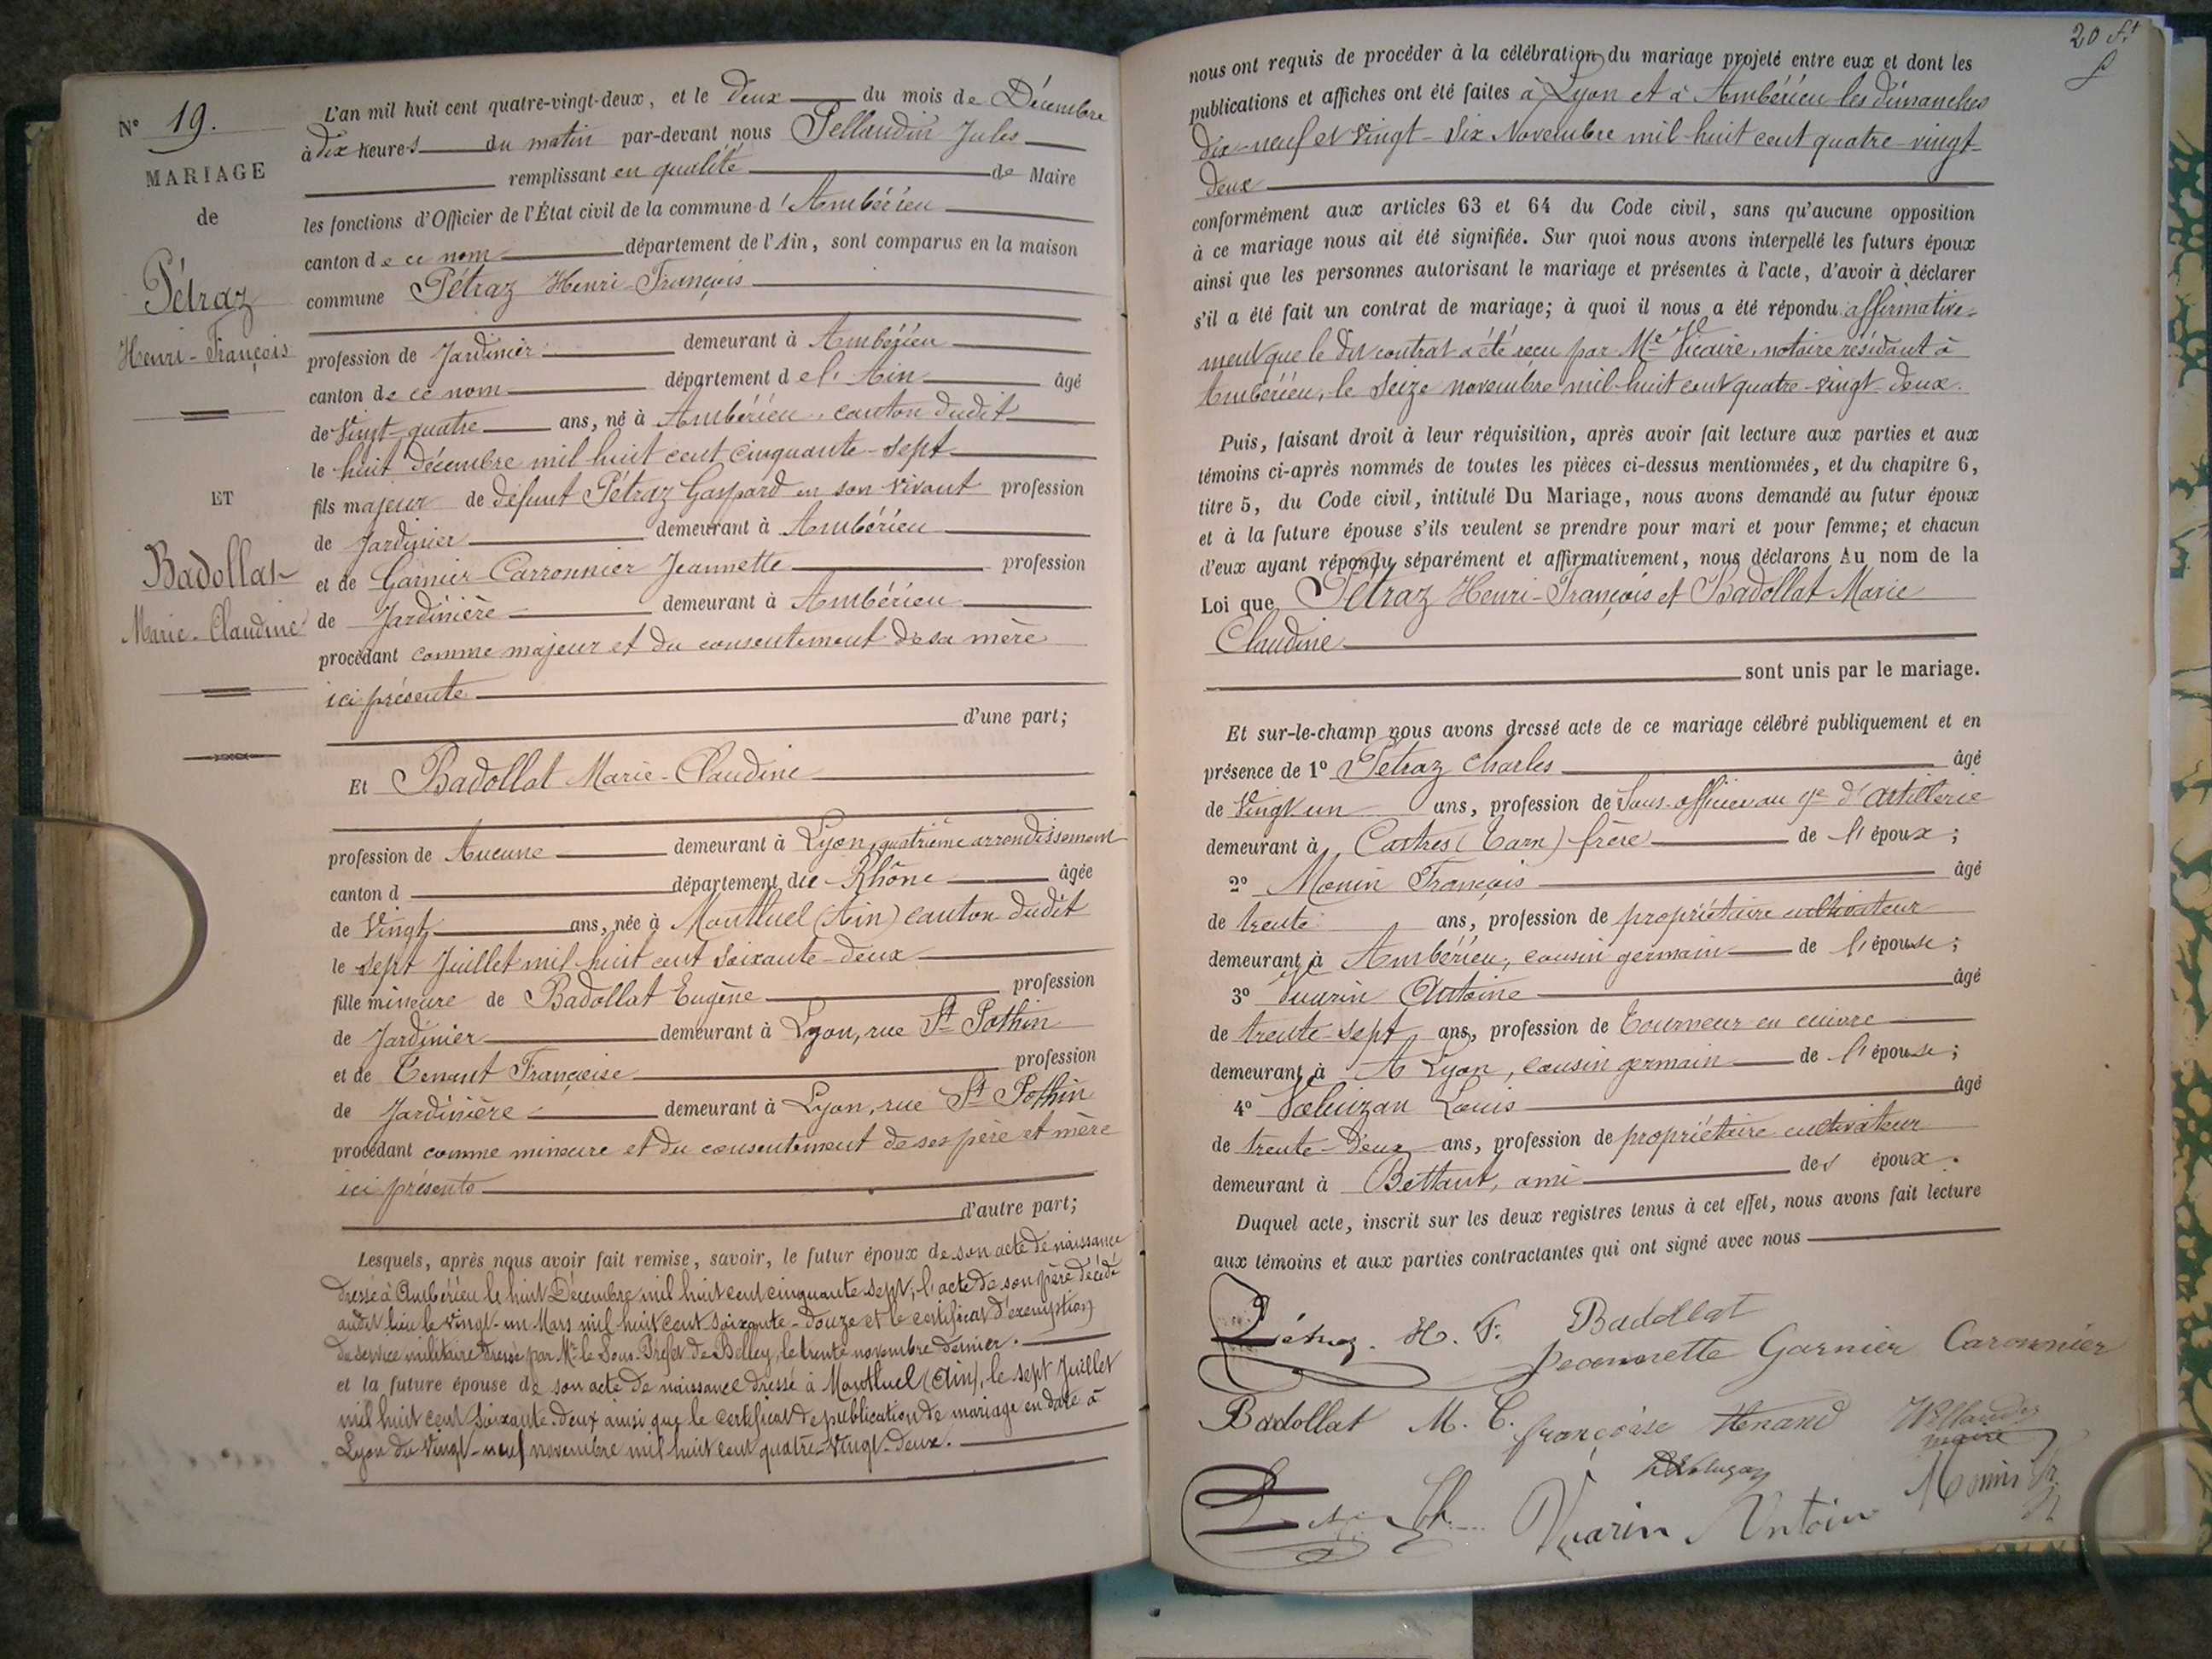 N° 19.
MARIAGE
de
Pétraz
Henri-François
ET
Badollat
Marie-Claudine
L'an mil huit cent quatre-vingt-deux, et le deux du mois de Décembre
à dix heures du matin par-devant nous Pellaudin Jules
remplissant en qualité de Maire
les fonctions d'Officier de l'État civil de la commune d'Ambérieu
canton de ce nom département de l'Ain, sont comparus en la maison
commune Pétraz Henri-François
profession de Jardinier demeurant à Ambérieu
canton de ce nom département de l'Ain âgé
de vingt-quatre ans, né à Ambérieu, canton dudit
le huit décembre mil huit cent cinquante-sept
fils majeur de défunt Pétraz Gaspard en son vivant profession
de Jardinier demeurant à Ambérieu
et de Garnier-Carronnier Jeannette profession
de Jardinière demeurant à Ambérieu
procédant comme majeur et du consentement de sa mère
ici présente
d'une part;
Et Badollat Marie-Claudine
profession de Aucune demeurant à Lyon, quatrième arrondissement
canton d département du Rhône âgée
de vingt ans, née à Montluel (Ain) canton dudit
le sept Juillet mil huit cent soixante-deux
fille mineure de Badollat Eugène profession
de Jardinier demeurant à Lyon, rue St Pothin
et de Tenant Françoise profession
de Jardinière demeurant à Lyon, rue St Pothin
procédant comme mineure et du consentement de ses père et mère
ici présents
d'autre part;
Lesquels, après nous avoir fait remise, savoir, le futur époux de son acte de naissance
dressé à Ambérieu le huit Décembre mil huit cent cinquante sept, l'acte de son père décédé
audit lieu le vingt-un Mars mil huit cent soixante-douze et le certificat d'exemption
de service militaire dressé par Mr le Sous-Préfet de Belley, le trente novembre dernier.
et la future épouse de son acte de naissance dressé à Montluel (Ain), le sept Juillet
mil huit cent soixante-deux ainsi que le certificat de publication de mariage en date à
Lyon du vingt-neuf novembre mil huit cent quatre-vingt-deux.
20 ft
nous ont requis de procéder à la célébration du mariage projeté entre eux et dont les
publications et affiches ont été faites à Lyon et à Ambérieu les dimanches
dix-neuf et vingt-six Novembre mil huit cent quatre-vingt-
deux
conformément aux articles 63 et 64 du Code civil, sans qu'aucune opposition
à ce mariage nous ait été signifiée. Sur quoi nous avons interpellé les futurs époux
ainsi que les personnes autorisant le mariage et présentes à l'acte, d'avoir à déclarer
s'il a été fait un contrat de mariage; à quoi il nous a été répondu affirmative-
ment que le dit contrat a été reçu par Me Vicaire, notaire résidant à
Ambérieu, le seize novembre mil huit cent quatre-vingt-deux.
Puis, faisant droit à leur réquisition, après avoir fait lecture aux parties et aux
témoins ci-après nommés de toutes les pièces ci-dessus mentionnées, et du chapitre 6,
titre 5, du Code civil, intitulé Du Mariage, nous avons demandé au futur époux
et à la future épouse s'ils veulent se prendre pour mari et pour femme; et chacun
d'eux ayant répondu séparément et affirmativement, nous déclarons Au nom de la
Loi que Pétraz Henri-François et Badollat Marie
Claudine
sont unis par le mariage.
Et sur-le-champ nous avons dressé acte de ce mariage célébré publiquement et en
présence de 1° Pétraz Charles âgé
de vingt un ans, profession de Sous-officier au 9e d'Artillerie
demeurant à Castres (Tarn) frère de l'époux;
2° Monin François âgé
de trente ans, profession de propriétaire cultivateur
demeurant à Ambérieu, cousin germain de l'épouse;
3° Vuarin Antoine âgé
de trente-sept ans, profession de Tourneur en cuivre
demeurant à A Lyon, cousin germain de l'épouse;
4° Louis âgé
de trente-deux ans, profession de propriétaire cultivateur
demeurant à Bettant, ami des époux.
Duquel acte, inscrit sur les deux registres tenus à cet effet, nous avons fait lecture
aux témoins et aux parties contractantes qui ont signé avec nous
Pétraz. H. F. Badollat
Jeannette Garnier Caronnier
Badollat M. C. françoise tenand
maire
Vuarin Antoine Monin fr